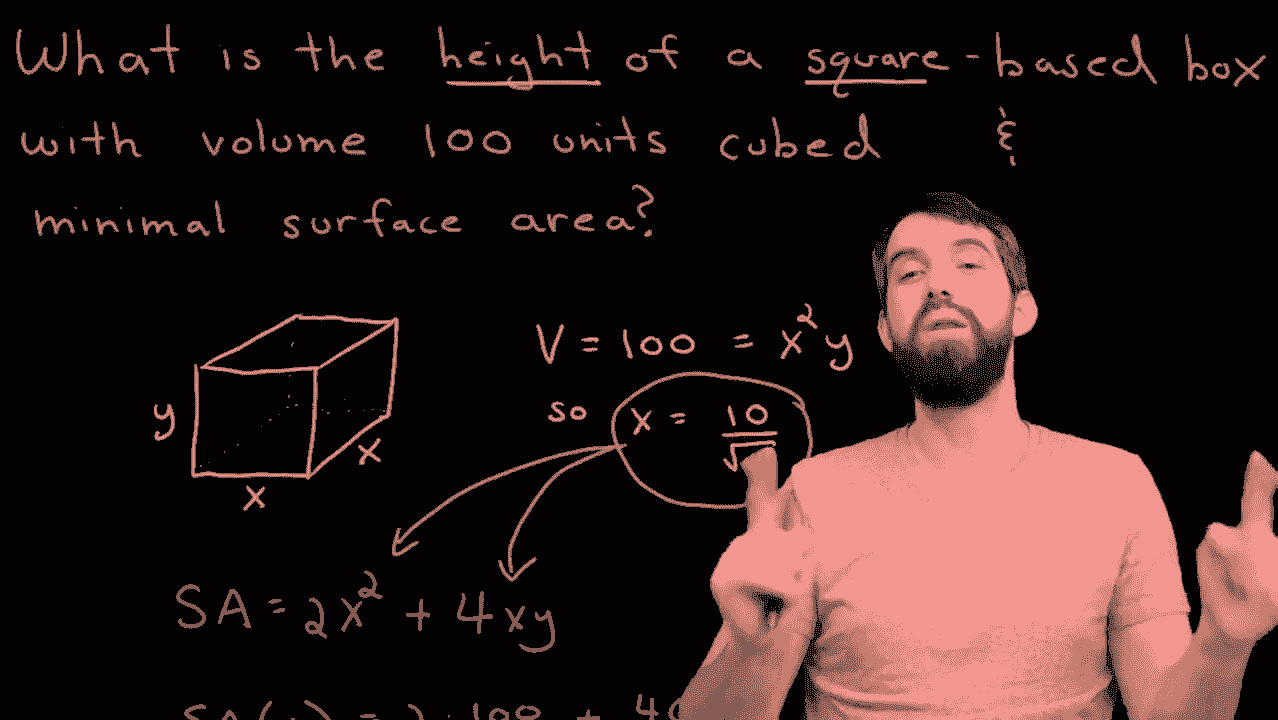 What is the height of a square-based box
with volume 100 units cubed &
minimal surface area?
V = 100 = x²y
so x = 10/√
y
x
x
SA = 2x² + 4xy
SA( ) = 2·100 + 40